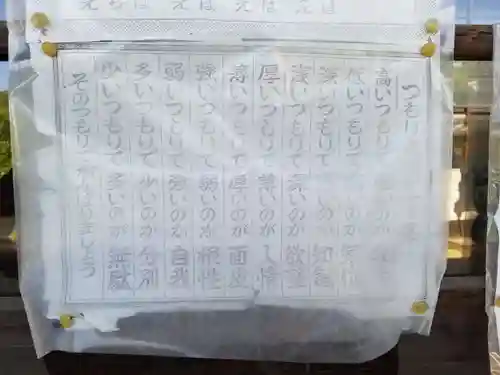 つもり
高いつもりで のが
低いつもりで のが気位
深いつもりで いのが知識
浅いつもりで深いのが欲望
厚いつもりで薄いのが人情
薄いつもりで厚いのが面皮
強いつもりで弱いのが根性
弱いつもりで強いのが自我
多いつもりで少いのが分別
少いつもりで多いのが無駄
そのつもりで がんばりましょう